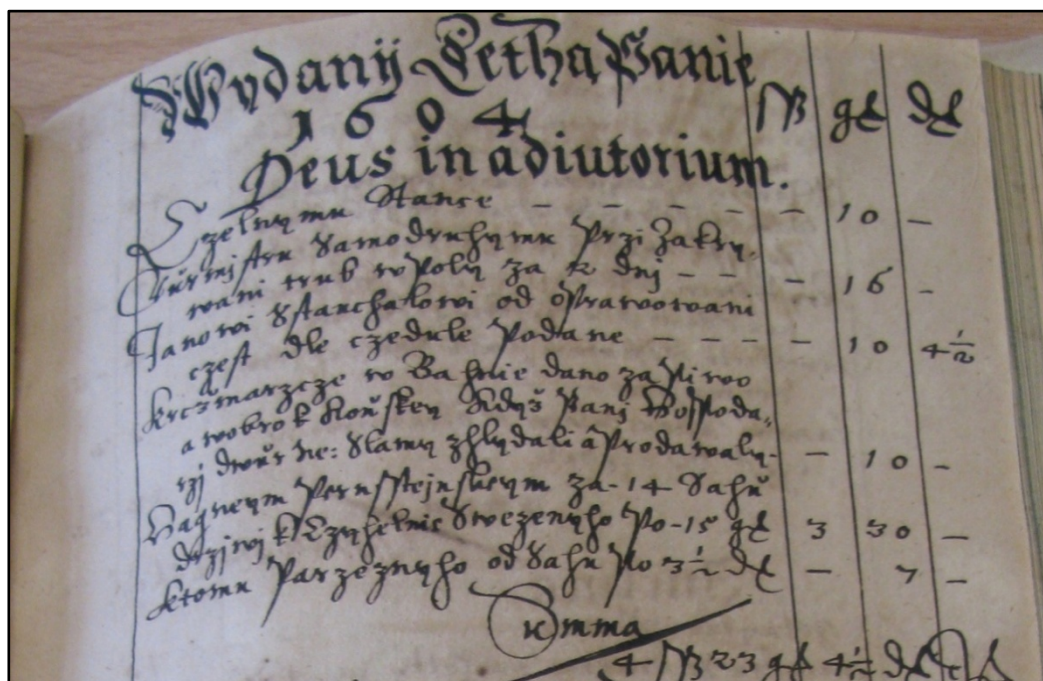 Wydanij Letha Panie
1604 ſß gß dß
Deus in adiutorium.
Czelnymu Stance – – – – – – 10 –
Kurmistru Samodruhymu Przi Zakry-
wani trub w Poly za 12 dnj – – – 16 –
Janowi od oprawowani
czest dle czedule Podane – – – – 10 4½
krczmarzcze w Bahnie dano za Piwo
a wobrok konsken kdyz Pani Hospoda-
rzj dwur ne: Slamy zhlydali a Prodawaly – 10 –
Hagnym Pernsstejnskym za 14 Sahu
drziwj k Czyhelnie Swezenyho Po 15 gß 3 30 –
ktomu Parzeznyho od Sahu Po 3½ dß – 7 –
Summa
4 ſß 23 gß 4½ dß